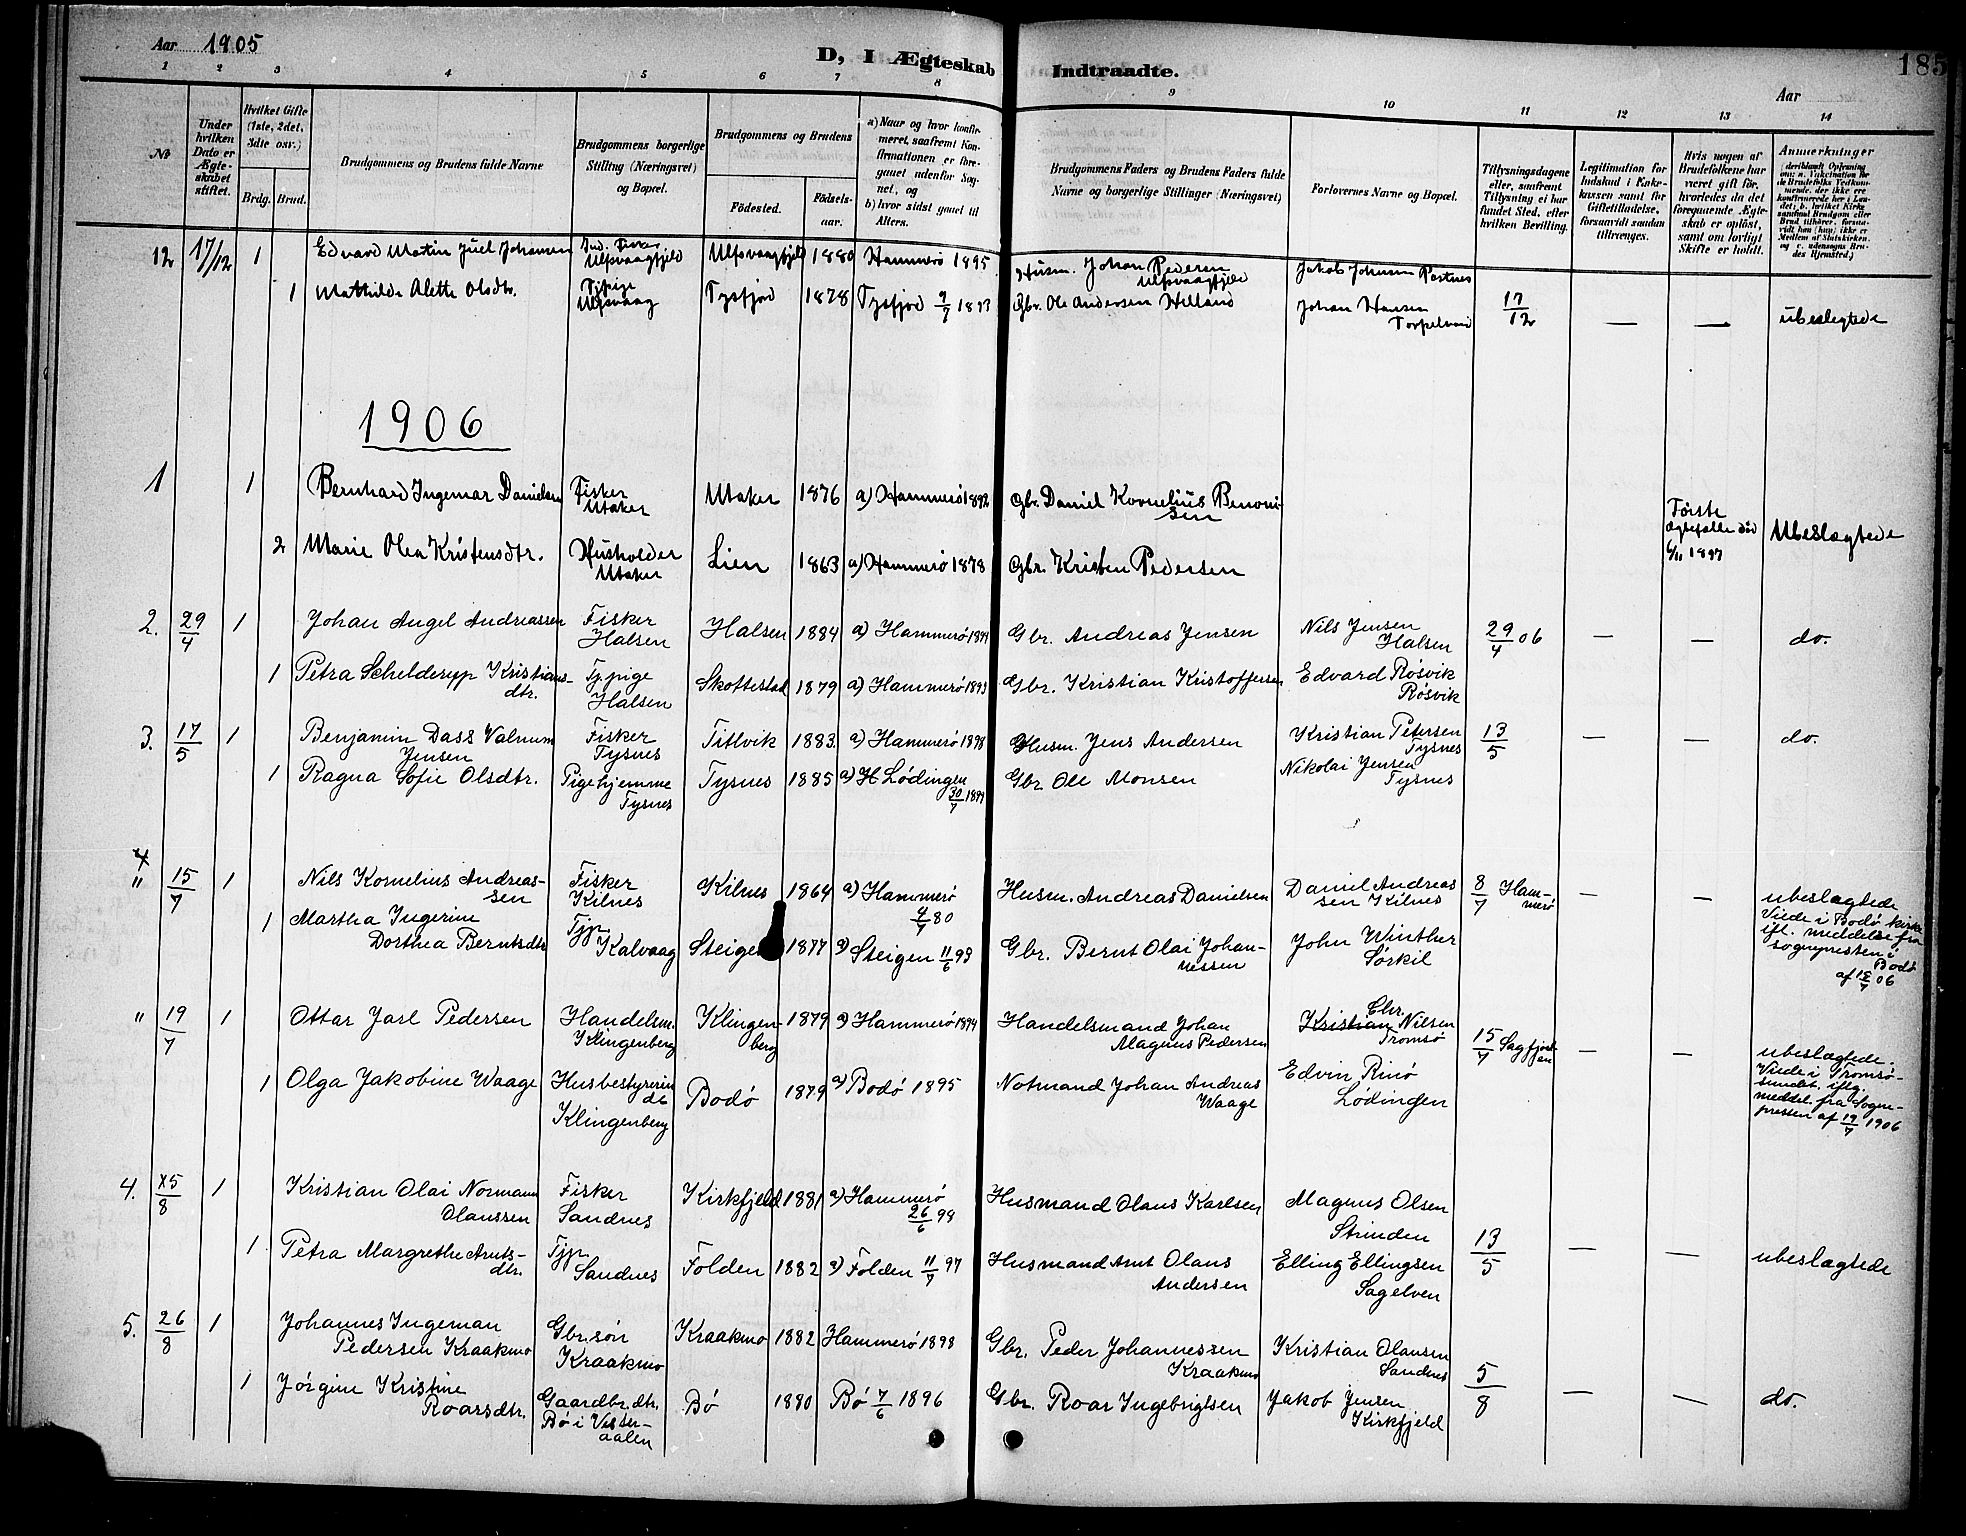 Aar 1905
D, I Ægteskab Indtraadte.
185
Aar
1 2 3 4 5 6 7 8 9 10 11 12 13 14
No
Under hvilken Dato er Ægteskabet stiftet.
Hvilket Gifte (1ste, 2det, 3die osv.)
Brdg. Brud.
Brudgommens og Brudens fulde Navne
Brudgommens borgerlige Stilling (Næringsvei) og Bopæl.
Brudgommens og Brudens
Fødested. Fødselsaar.
a) Naar og hvor konfirmeret, saafremt Konfirmationen er foregaaet udenfor Sognet, og
b) hvor sidst gaaet til Alters.
Brudgommens Faders og Brudens Faders fulde Navne og borgerlige Stillinger (Næringsvei)
Forlovernes Navne og Bopæl.
Tillysningsdagene eller, saafremt Tillysning ei har fundet Sted, efter hvilken Bevilling.
Legitimation for Indskud i Enkekassen samt for Giftetilladelse, forsaavidt saadan tiltrænges.
Hvis nogen af Brudefolkene har været gift før, hvorledes da det foregaaende Ægteskab er opløst, samt om lovligt Skifte er holdt.
Anmerkninger
12 17/12 1 Edvard Martin Juel Johansen Ind. Fisker Ulfsvaagfjeld Ulfsvaagfjeld 1880 Hammerø 1895 Husm. Johan Pedersen Ulfsvaagfjeld Jakob Johnsen Rostnes
1 Mathilde Alette Olsdtr. Tjpige Ulfsvaag Tysfjord 1878 Tysfjord 9/7 1893 Gbr. Ole Andersen Helland Johan Hansen 17/12 — — ubeslegtede
1906
1 1 Bernhard Ingemar Danielsen Fisker Utaker Utaker 1876 a) Hammerø 1892 Gbr. Daniel Kornelius Benonisen
2 Marie Olea Kristensdtr. Husholder Utaker Lien 1863 a) Hammerø 1878 Gbr. Kristen Pedersen Første Ægtefælle død 6/11 1897 Ubeslægtede
2. 29/4 1 Johan Angel Andreassen Fisker Halsen Halsen 1884 a) Hammerø 1899 Gbr. Andreas Jensen Nils Jensen Halsen 29/4 06 — — do.
1 Petra Schelderup Kristiansdtr. Tjpige Halsen Skottestad 1879 a) Hammerø 1893 Gbr. Kristian Kristoffersen Edvard Røsvik Røsvik
3. 17/5 1 Benjamin Dass Valnum Jensen Fisker Tysnes Tittvik 1883. a) Hammerø 1898 Husm. Jens Andersen Kristian Petersen Tysnes 13/5 — — do.
1 Ragna Sofie Olsdtr. Pige hjemme Tysnes Tysnes 1885 a) H Lødingen 30/7 1899 Gbr Ole Monsen Nikolai Jensen Tysnes
4
" 15/7 1 Nils Kornelius Andreassen Fisker Kilnes Kilnes 1864 a) Hammerø 4/7 80 Husm. Andreas Danielsen Daniel Andreassen Kilnes 8/7 Hammerø — — ubeslægtede
1 Martha Ingerine Dorthea Berntsdtr Tjp. Kalvaag Steigen 1877 a) Steigen 11/6 93 Gbr. Bernt Olai Johannessen John Winther Sørkil
Viede i Bodø kirke ifl. meddelelse fra sognepresten i Bodø af 15/7 06
" 19/7 1 Ottar Jarl Pedersen Handelsm. Klingenberg Klingenberg 1879 a) Hammerø 1894 Handelsmand Johan Magnus Pedersen Kristian Chr. Nilsen Tromsø 15/7 Sagfjorden — — ubeslægtede.
1 Olga Jakobine Waage Husbestyrerinde Klingenberg Bodø 1879 a) Bodø 1895 Notmand Johan Andreas Waage Edvin Rinø Lødingen
Viede i Tromsøsundet iflg. meddel. fra Sognepresten af 19/7 1906
4. 25/8 1 Kristian Olai Normann Olaussen Fisker Sandnes Kirkfjeld 1881 a) Hammerø 26/6 98 Husmand Olaus Karlsen Magnus Olsen Strinden
1 Petra Margrethe Arntsdtr. Tjp. Sandnes Folden 1882 a) Folden 11/7 97 Husmand Arnt Olaus Andersen Elling Ellingsen Sagelven 13/5 — — ubeslægtede
5. 26/8 1 Johannes Ingeman Pedersen Kraakmo Gbr.søn Kraakmo Kraakmo 1882 Hammerø 1898 Gbr. Peder Johannessen Kraakmo Kristian Olausen Sandnes
1 Jørgine Kristine Roarsdtr. Gaardbr.dtr. Bø i Vesteraalen Bø 1880 Bø 7/6 1896 Gbr. Roar Ingebrigtsen Jakob Jensen Kirkfjeld 5/8 — — do.